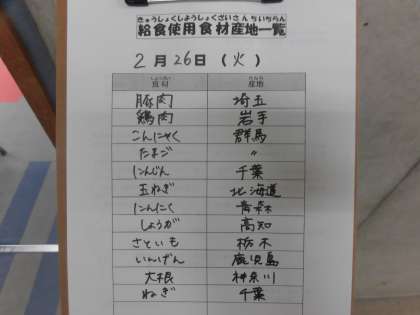 きゅうしょくしようしょくざいさんちいちらん
給食使用食材産地一覧
2月26日(火)
しょくざい さんち
食材 産地
豚肉 埼玉
鶏肉 岩手
こんにゃく 群馬
たまご 〃
にんじん 千葉
玉ねぎ 北海道
にんにく 青森
しょうが 高知
さといも 栃木
いんげん 鹿児島
大根 神奈川
ねぎ 千葉